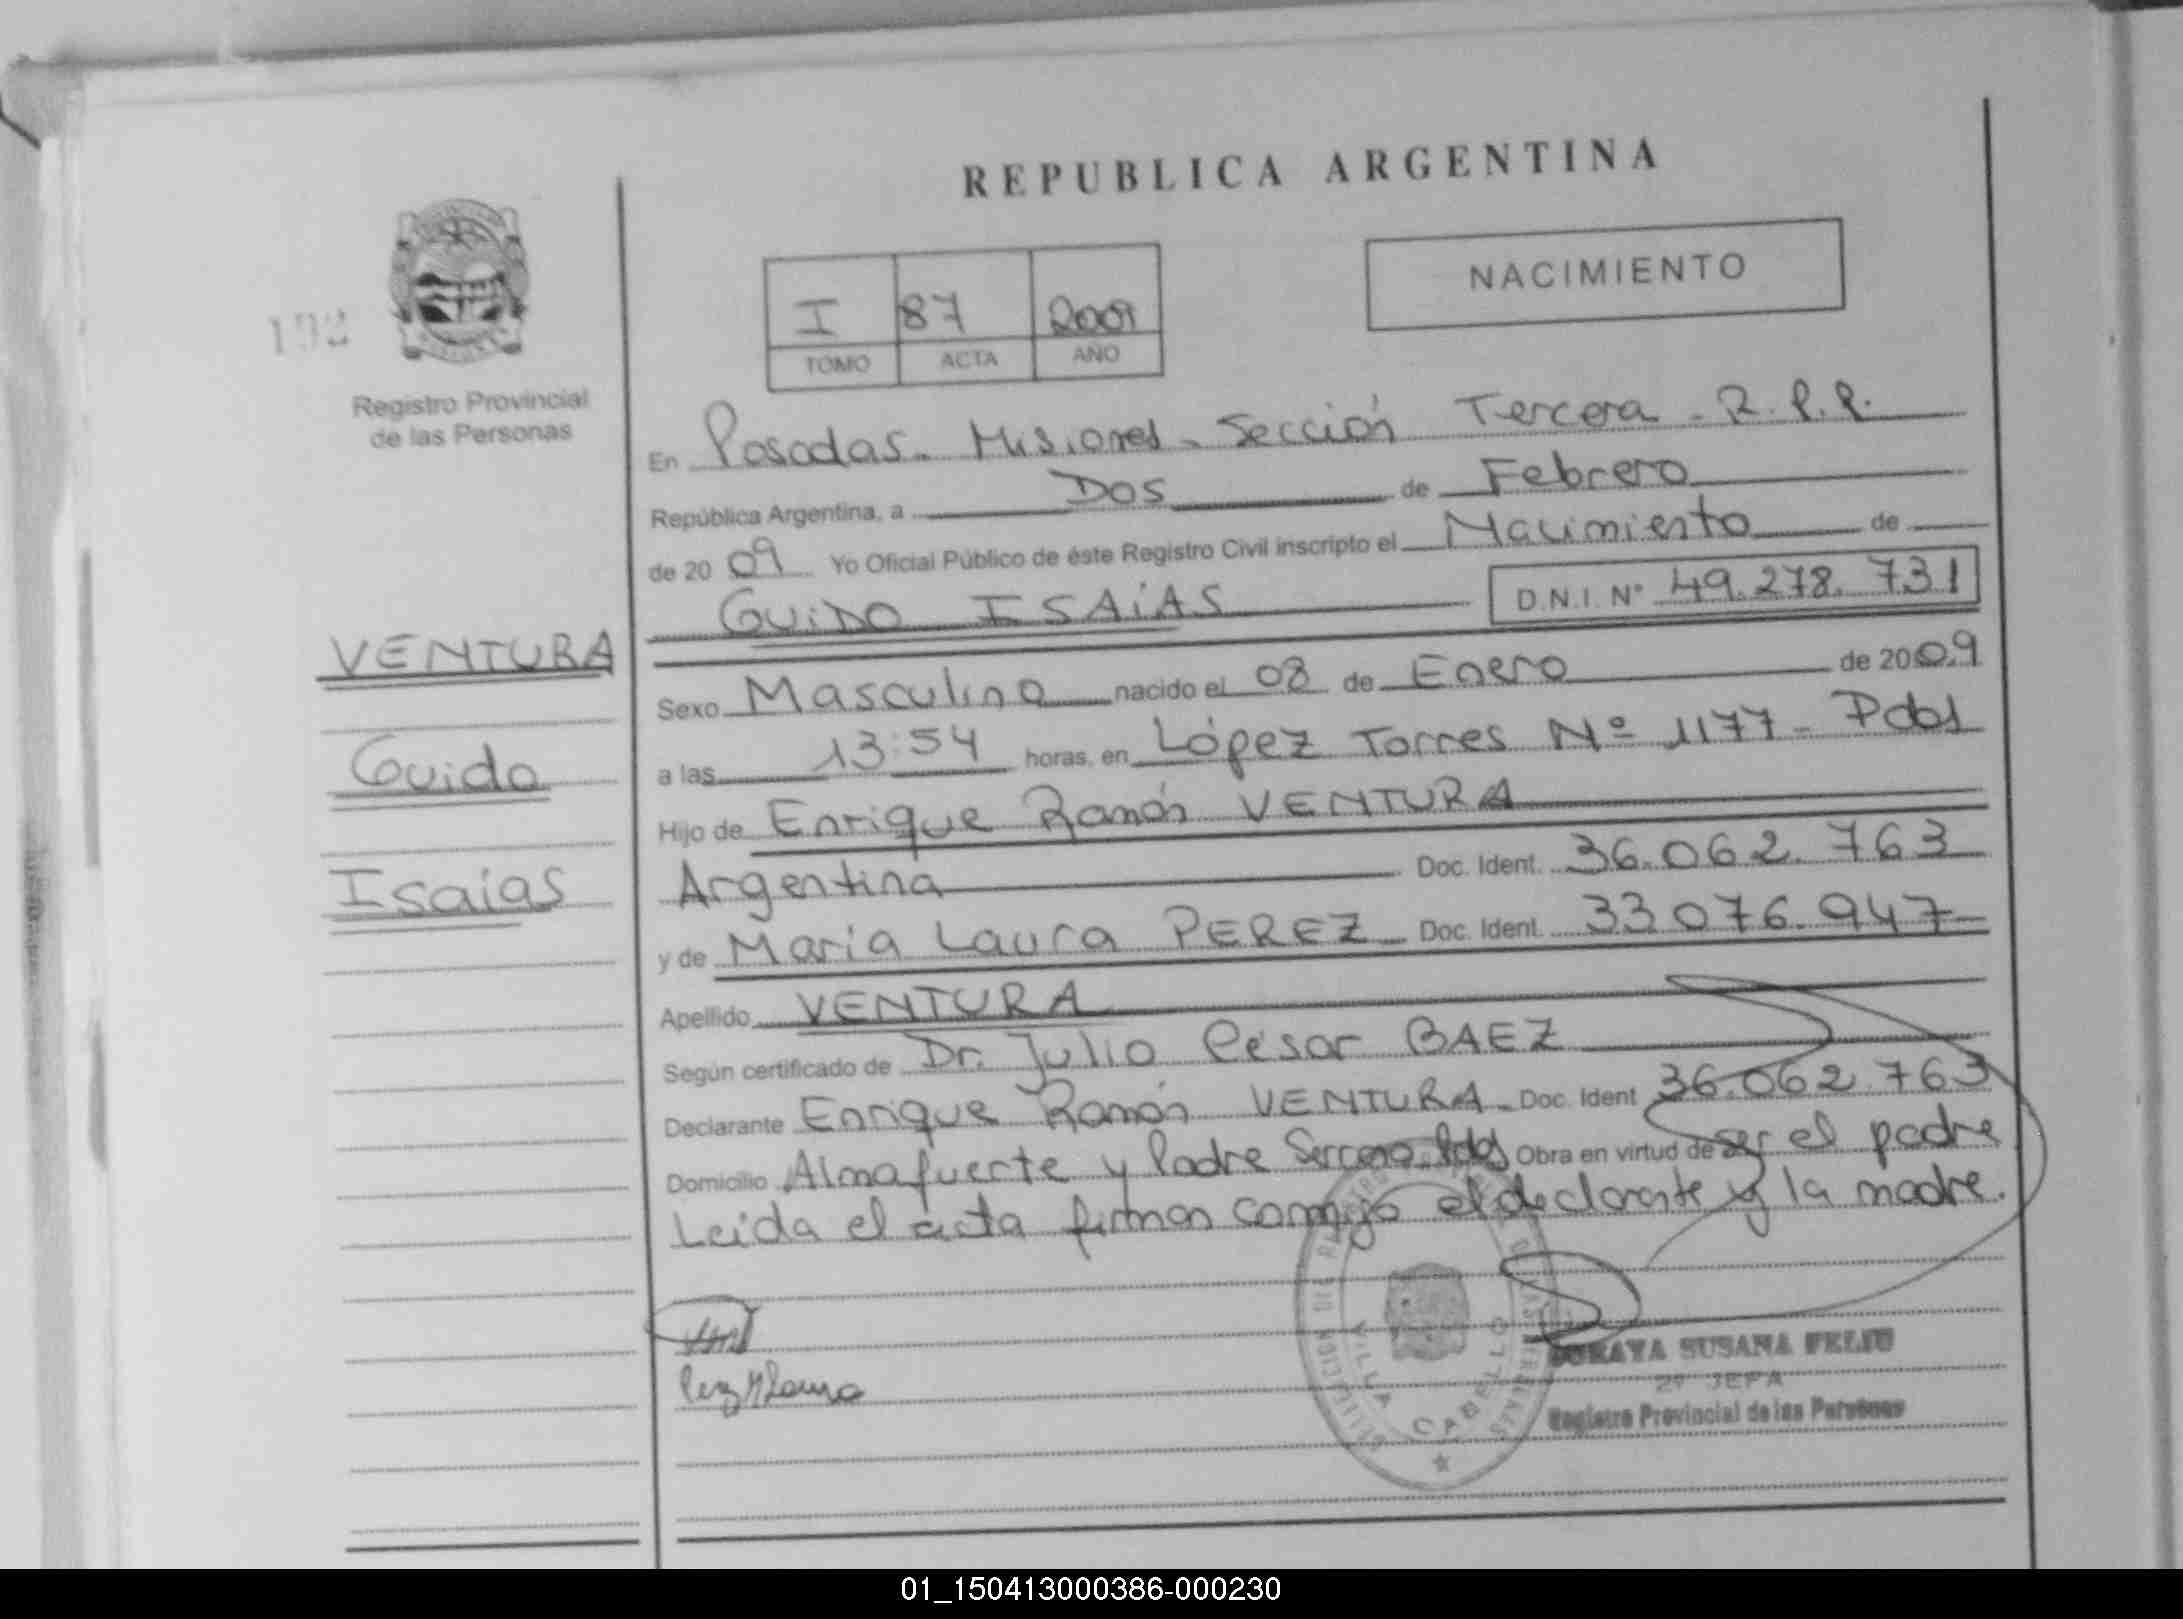 REPUBLICA ARGENTINA
NACIMIENTO
I 87 2009
TOMO ACTA AÑO
192
Registro Provincial
de las Personas
VENTURA
Guido
Isaias
En Posadas. Misiones. Sección Tercera - R.P.P.
República Argentina, a Dos de Febrero
de 2009 Yo Oficial Público de éste Registro Civil inscripto el Nacimiento de
GUIDO ISAíAS D.N.I. Nº 49.278.731
Sexo Masculino nacido el 08 de Enero de 2009
a las 13:54 horas, en López Torres Nº 1177 - Pdas
Hijo de Enrique Ramón VENTURA
Argentina Doc. Ident. 36.062.763
y de María Laura PEREZ Doc. Ident. 33.076.947
Apellido VENTURA
Según certificado de Dr. Julio César BAEZ
Declarante Enrique Ramón VENTURA Doc. Ident 36.062.763
Domicilio Almafuerte y Padre Serrano. Pdas Obra en virtud de ser el padre
Leida el acta firman conmigo el declarante y la madre.
VILLA CABELLO
SORAYA SUSANA FELIU
2º JEFA
Registro Provincial de las Personas
01_150413000386-000230